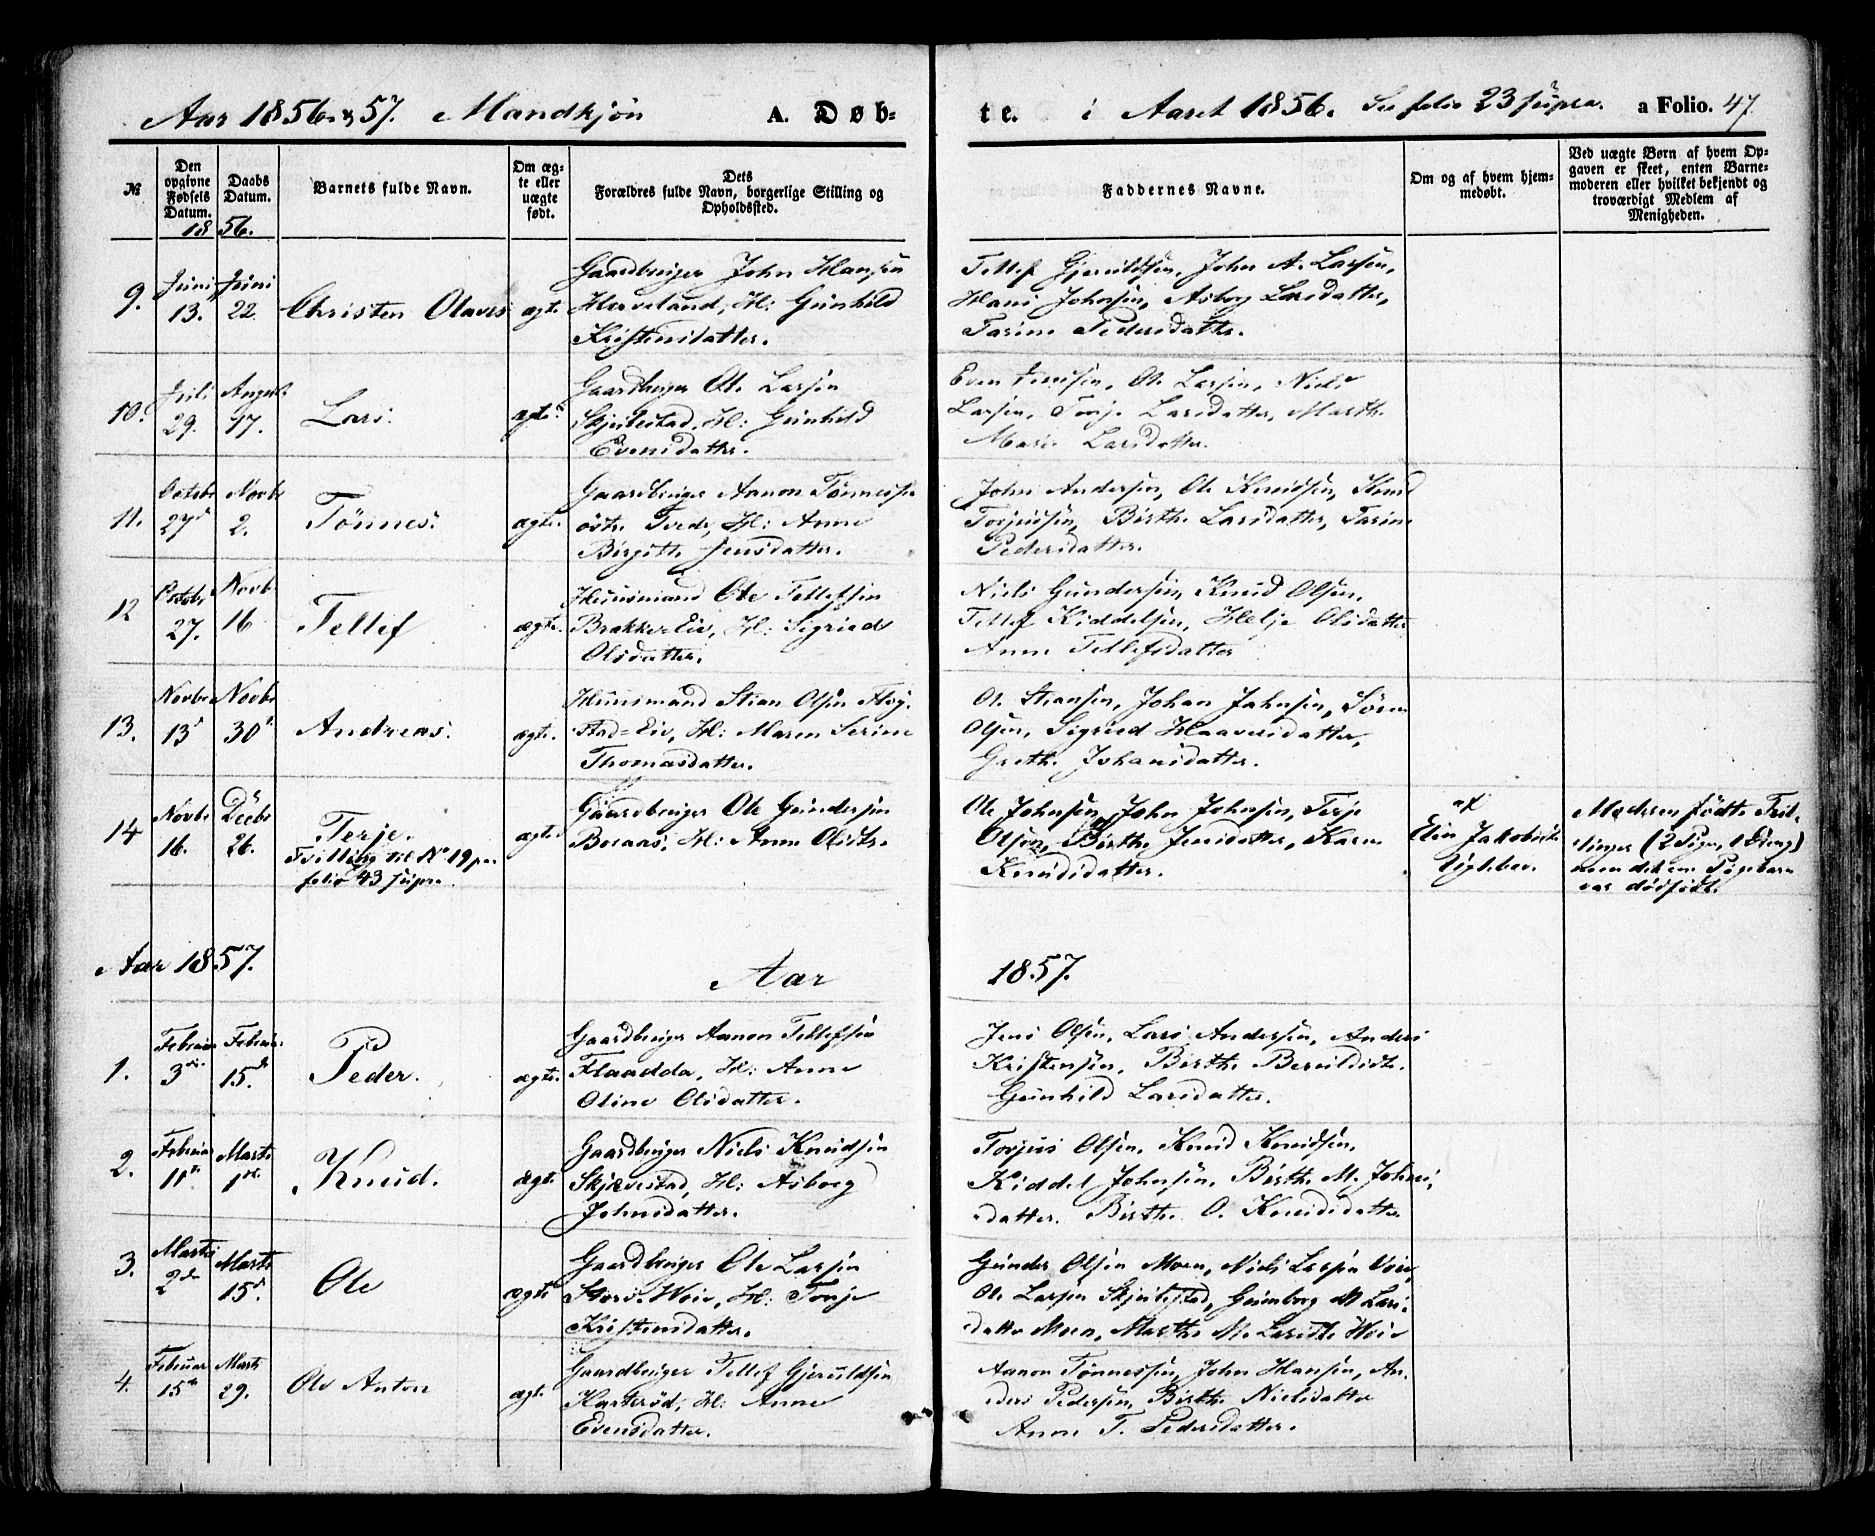 Aar 1856 & 57. Mandkjön A. Døb-
te. i Aaret 1856. See folio 23 supra. a Folio. 47.
№
Den opgivne Fødsels Datum.
Daabs Datum.
Barnets fulde Navn.
Om ægte eller uægte født.
Dets Forældres fulde Navn, borgerlige Stilling og Opholdssted.
Faddernes Navne.
Om og af hvem hjemmedøbt.
Ved uægte Børn af hvem Opgaven er skeet, enten Barnemoderen eller hvilket bekjendt og troværdigt Medlem af Menigheden.
1856.
9. Juni 13. Juni 22. Christen Olaves ægte.
Gaardbruger John Hansen
Herveland, H: Gunhild
Kristensdatter.
Tellef Gjeruldsen, John A. Larsen,
Hans Johnsen, Asborg Larsdatter,
Tarine Pedersdatter.
10. Juli 29. August 17. Lars. ægte
Gaardbruger Ole Larsen
Skjulestad, H: Gunhild
Evensdatter.
Even Jensen, Ole Larsen, Niels
Larsen, Tonje Larsdatter, Marthe
Marie Larsdatter.
11. Octobr 27 Novbr 2. Tönnes. ægte.
Gaardbruger Aanon Tönnessen
östre Tvede, H: Anne
Birgitte Jensdatter.
John Andersen, Ole Knudsen, Knud
Torjussen, Birthe Larsdatter, Tarine
Pedersdatter.
12 Octobr 27. Novbr 16 Tellef ægte.
Huusmand Ole Tellefsen
Brække-Eie, H: Sigried
Olsdatter.
Niels Gundersen, Knud Olsen,
Tellef Kiddelsen, Helje Olsdatter
Anne Tellefsdatter
13. Novbr 13 Novbr 30 Andreas. ægte.
Huusmand Stian Olsen
stad-Eie, H: Maren Serine
Thomasdatter.
Ole Stiansen, Johan Johnsen, Sören
Olsen, Sigried Haaversdatter,
Grethe Johansdatter.
14 Novbr 16. Decbr 26. Terje.
Tvilling til No 19 paa
folio 43 supra.
ægte.
Gaardbruger Ole Gundersen
Boraas, H: Anne Olsdtr.
Ole Johnsen, John Johnsen, Terje
Olsen, Birthe Jensdatter, Karen
Knudsdatter.
af
Elin Jakobsdtr.
Uglebev.
Moderen födte Tril-
linger (2 Piger, 1 Dreng)
men det ene Pigebarn
var dödfödt.
Aar 1857.
Aar
1857.
1. Februar 3die Februar 15de Peder. ægte.
Gaardbruger Aanon Tellefsen
Flaadda, H: Anne
Oline Olsdatter.
Jens Olsen, Lars Andersen, Anders
Kristensen, Birthe Beruldsdtr.
Gunhild Larsdatter.
2. Februar 11te Marts 1ste Knud. ægte.
Gaardbruger Niels Knudsen
Skjævestad, H: Asborg
Johnsdatter.
Torjus Olsen, Knud Knudsen,
Kiddel Johnsen, Birthe M. Johns-
datter. Birthe O. Knudsdatter
3. Marts 2de Marts 15. Ole ægte
Gaardbruger Ole Larsen
Store-Woie, H: Tonje
Kristensdatter.
Gunder Olsen Moen, Niels Larsen Voie,
Ole Larsen Skjulestad, Gunborg M Lars-
datter Moen, Marthe M. Larsdtr. Woie
4. Februar 15de Marts 29. Ole Anton ægt.
Gaardbruger Tellef Gjeruldsen
Harkeröd, H: Anne
Evensdatter.
Aanon Tönnessen, John Hansen, An-
ders Pedersen, Birthe Nielsdatter
Anne T. Pedersdatter.